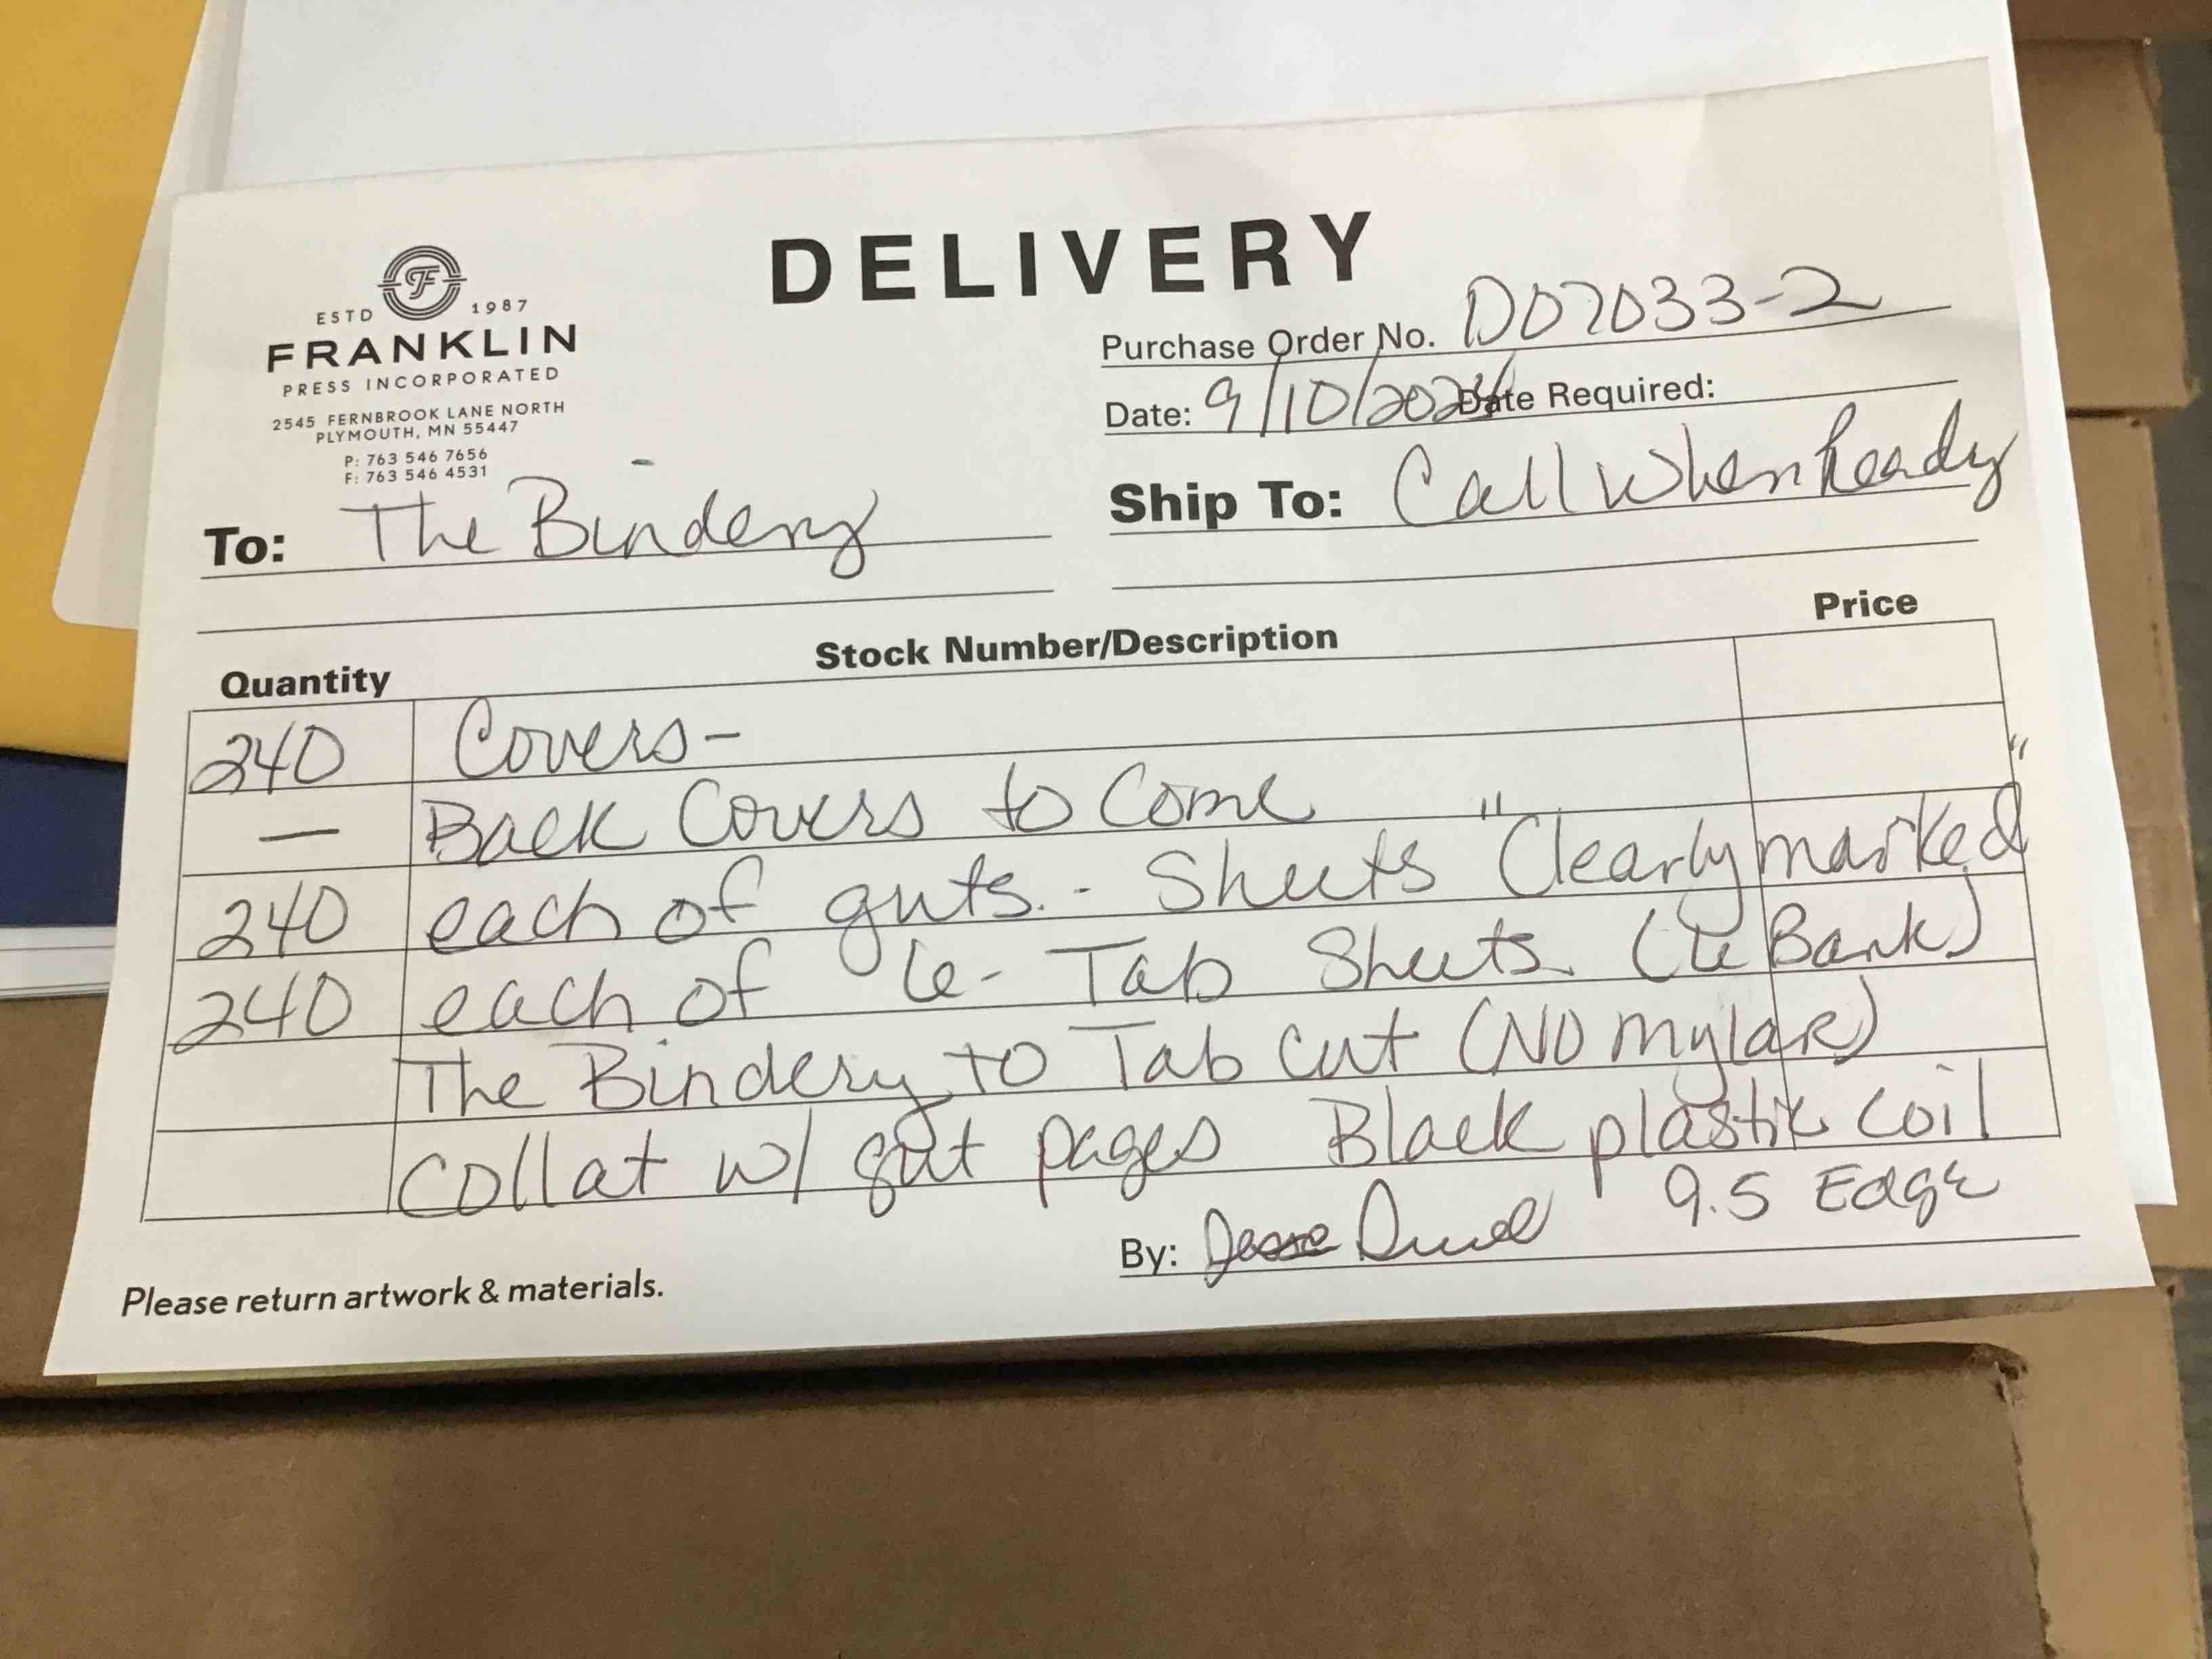 DELIVERY
F
ESTD 1987
FRANKLIN
PRESS INCORPORATED
2545 FERNBROOK LANE NORTH
PLYMOUTH, MN 55447
P: 763 546 7656
F: 763 546 4531
Purchase Order No. D07033-2
Date: 9/10/2024 Date Required:
To: The Bindery
Ship To: Call When Ready
Quantity Stock Number/Description Price
240 Covers-
— Back Covers to Come
240 each of guts. - Sheets "Clearly marked"
240 each of 6- Tab Sheets. (6 Bank)
The Bindery to Tab cut (NO mylar)
Collat w/ gut pages Black plastic coil
9.5 Edge
By: Jesse
Please return artwork & materials.